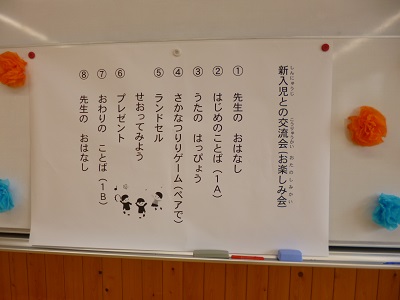 新入児との交流会(お楽しみ会)
① 先生の おはなし
② はじめのことば(1A)
③ うたの はっぴょう
④ さかなつりりゲーム(ペアで)
⑤ ランドセル
せおってみよう
⑥ プレゼント
⑦ おわりの ことば(1B)
⑧ 先生の おはなし